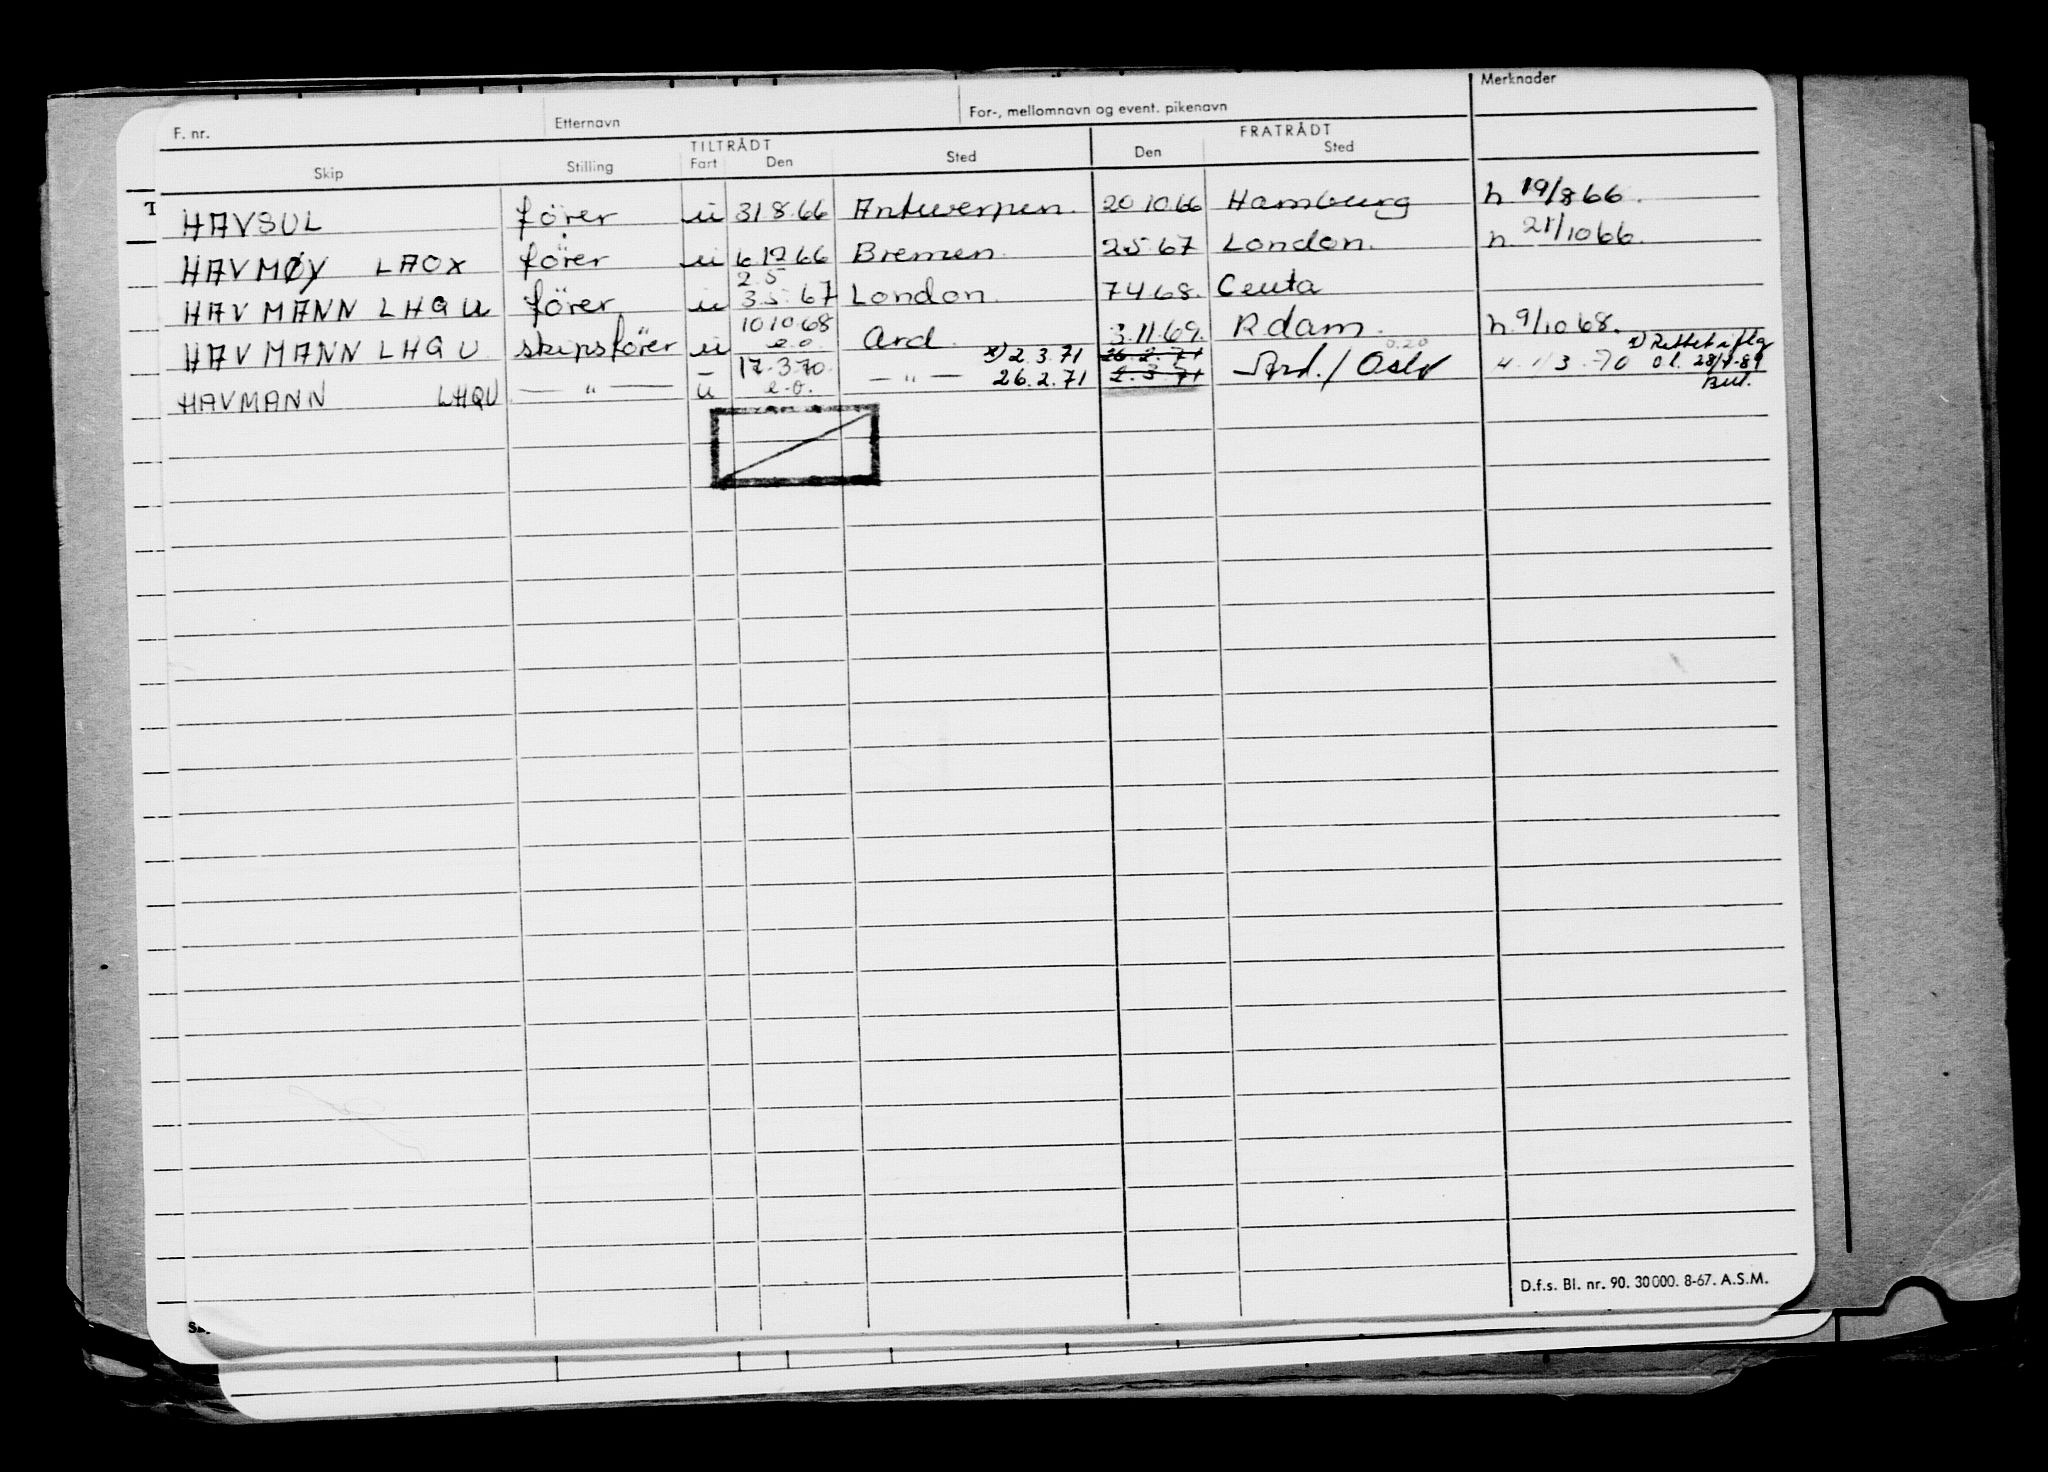 Merknader
F. nr. Etternavn For-, mellomnavn og event. pikenavn
TILTRÅDT FRATRÅDT
Skip Stilling Fart Den Sted Den Sted
HAVSUL fører u 31 8.66 Antwerpen. 20 10.66 Hamburg h 19/8 66.
HAVMØY LAOX fører u 6 12 66 Bremen 2.5.67 London. h 21/10 66.
2.5
HAVMANN LHQU fører u 3.5.67 London. 7 4 68. Ceuta
10 10.68
HAVMANN LHQU skipsfører u e.o. Ard. 3.11.69. Rdam. h. 9/10 68.
x) 2.3.71 26.2.71 x) Rettet
17.3.70. o.l. 28/7-81
HAVMANN LHQU — " — u e.o. — " — 26.2.71 2.3.71 Ard./Oslo 3.-70
D.f.s. Bl. nr. 90. 30 000. 8-67. A.S.M.